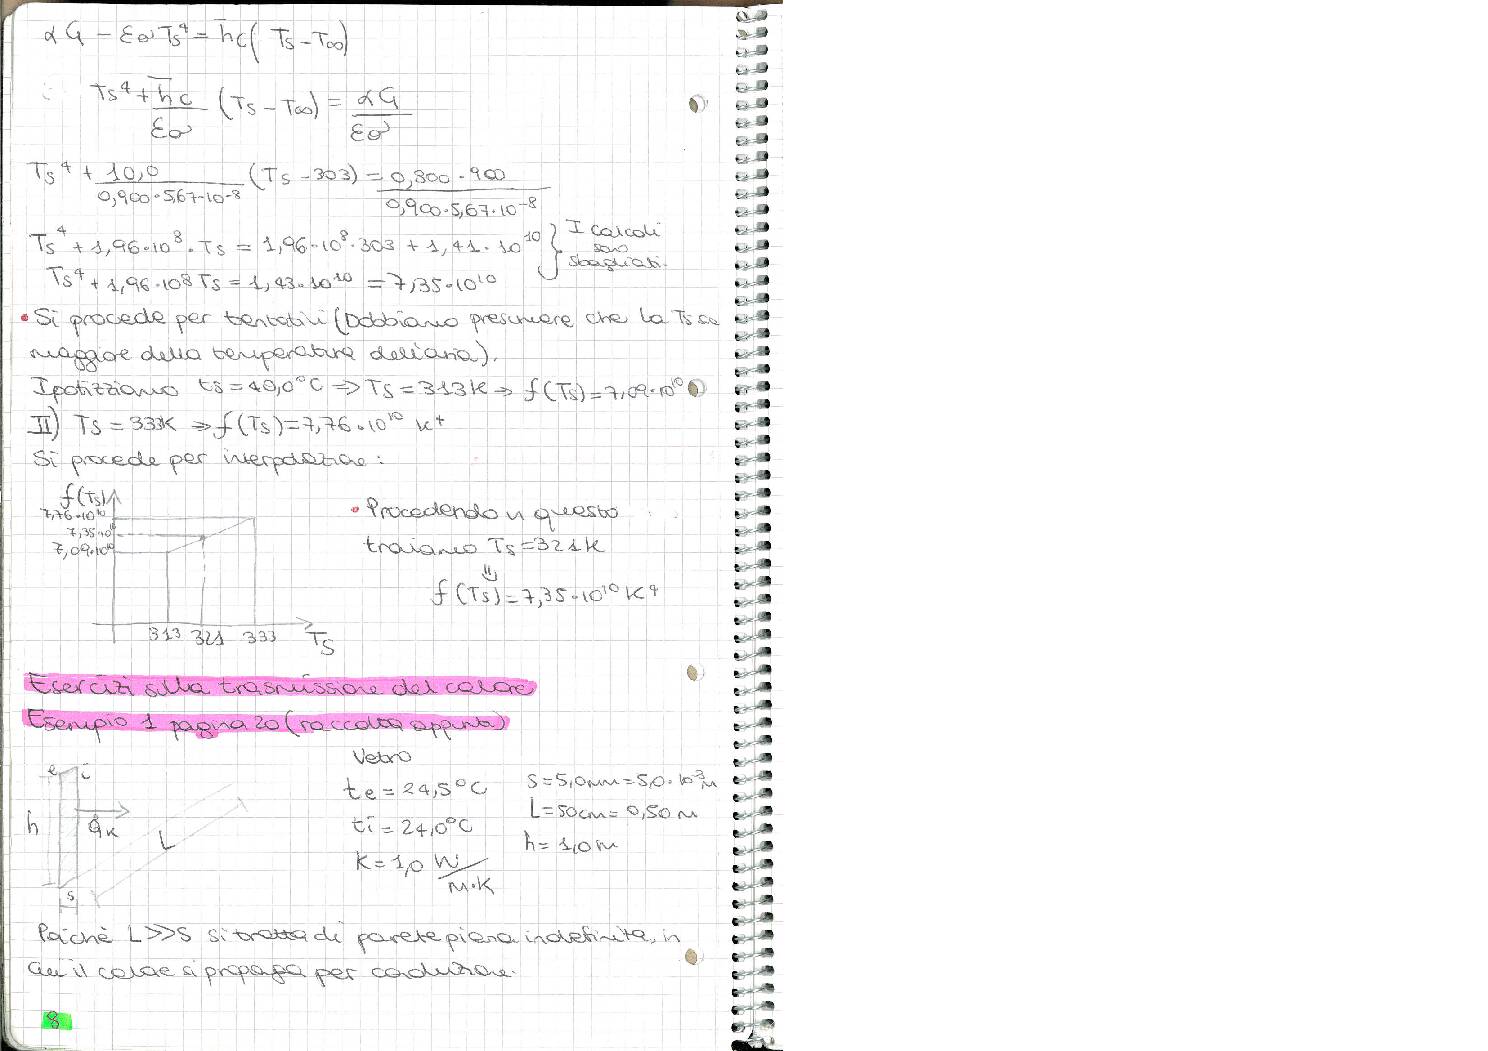 αG − εσTs⁴ = h̄c (Ts − T∞)
Ts⁴ + h̄c/εσ (Ts − T∞) = αG/εσ
Ts⁴ + 10,0/0,900·5,67·10⁻⁸ (Ts − 303) = 0,800·900/0,900·5,67·10⁻⁸
Ts⁴ + 1,96·10⁸·Ts = 1,96·10⁸·303 + 1,41·10¹⁰ } I calcoli sono sbagliati.
Ts⁴ + 1,96·10⁸ Ts = 1,43·10¹⁰ = 7,35·10¹⁰
• Si procede per tentativi (Dobbiamo presumere che la Ts sia
maggiore della temperatura dell'aria).
Ipotizziamo ts = 40,0°C ⇒ Ts = 313K ⇒ f(Ts) = 7,09·10¹⁰
II) Ts = 333K ⇒ f(Ts) = 7,76·10¹⁰ K⁴
Si procede per interpolazione:
f(Ts)
7,76·10¹⁰
7,35·10¹⁰
7,09·10¹⁰
313 321 333 Ts
• Procedendo in questo
troviamo Ts = 321K
⇓
f(Ts) = 7,35·10¹⁰ K⁴
Esercizi sulla trasmissione del calore
Esempio 1 pagina 20 (raccolta appunti)
e i
h
q̇K
L
s
Vetro
te = 24,5°C
ti = 24,0°C
K = 1,0 W/m·K
s = 5,0mm = 5,0·10⁻³m
L = 50cm = 0,50m
h = 1,0m
Poiché L>>s si tratta di parete piana indefinita, in
cui il calore si propaga per conduzione.
8